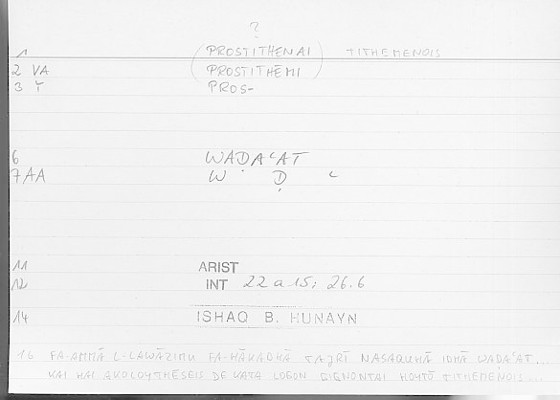 ?
1 (PROSTITHENAI) TITHEMENOIS
2 VA (PROSTITHĒMI)
3 T PROS-
6 WAḌAʿAT
7/AA W Ḍ ʿ
11 ARIST
12 INT 22 a 15; 26.6
14 ISHAQ B. HUNAYN
16 FA-AMMĀ L-LAWĀZIMU FA-HĀKADHĀ TAJRĪ NASAQUHĀ IDHĀ WAḌAʿAT...
KAI HAI AKOLOYTHĒSEIS DE KATA LOGON GIGNONTAI HOYTŌ TITHEMENOIS...